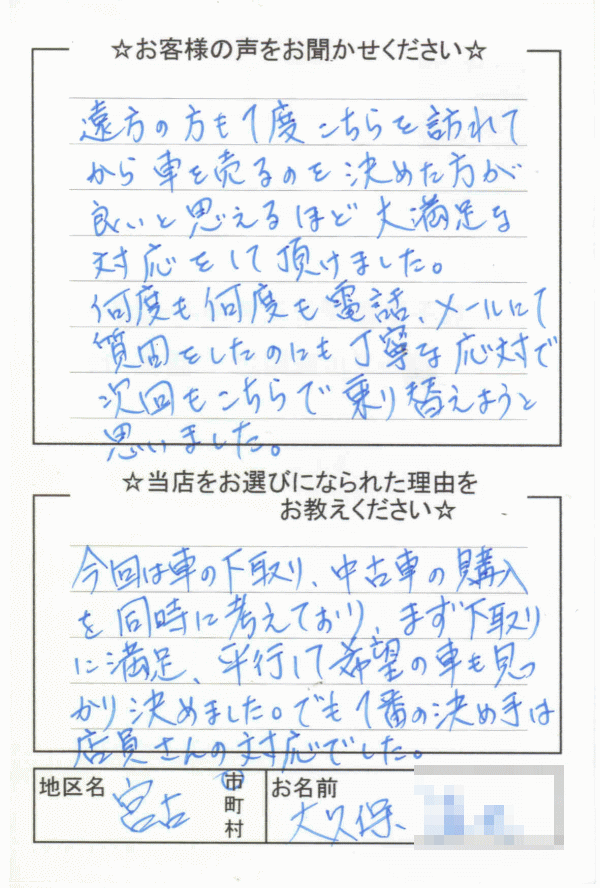 ☆お客様の声をお聞かせください☆
遠方の方も1度こちらを訪れて
から車を売るのを決めた方が
良いと思えるほど大満足な
対応をして頂けました。
何度も何度も電話、メールにて
質問をしたのにも丁寧な応対で
次回もこちらで乗り替えようと
思いました。
☆当店をお選びになられた理由を
お教えください☆
今回は車の下取り、中古車の購入
を同時に考えており、まず下取り
に満足、平行して希望の車も見つ
かり決めました。でも1番の決め手は
店員さんの対応でした。
地区名 宮古 市町村 お名前 大久保